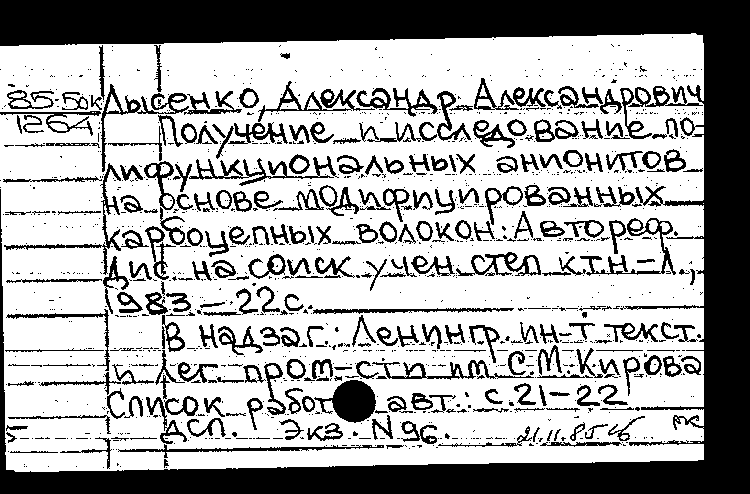 85-5ок Лысенко, Александр Александрович
1264 Получение и исследование по-
лифункциональных анионитов
на основе модифицированных
карбоцепных волокон: Автореф.
дис на соиск учен. степ к.т.н. - Л.,
1983. - 22 с.
В надзаг.: Ленингр. ин-т текст.
и лег. пром-сти им. С.М. Кирова
Список работ авт.: с. 21-22
ДСП. Экз. N 96. 21.11.85